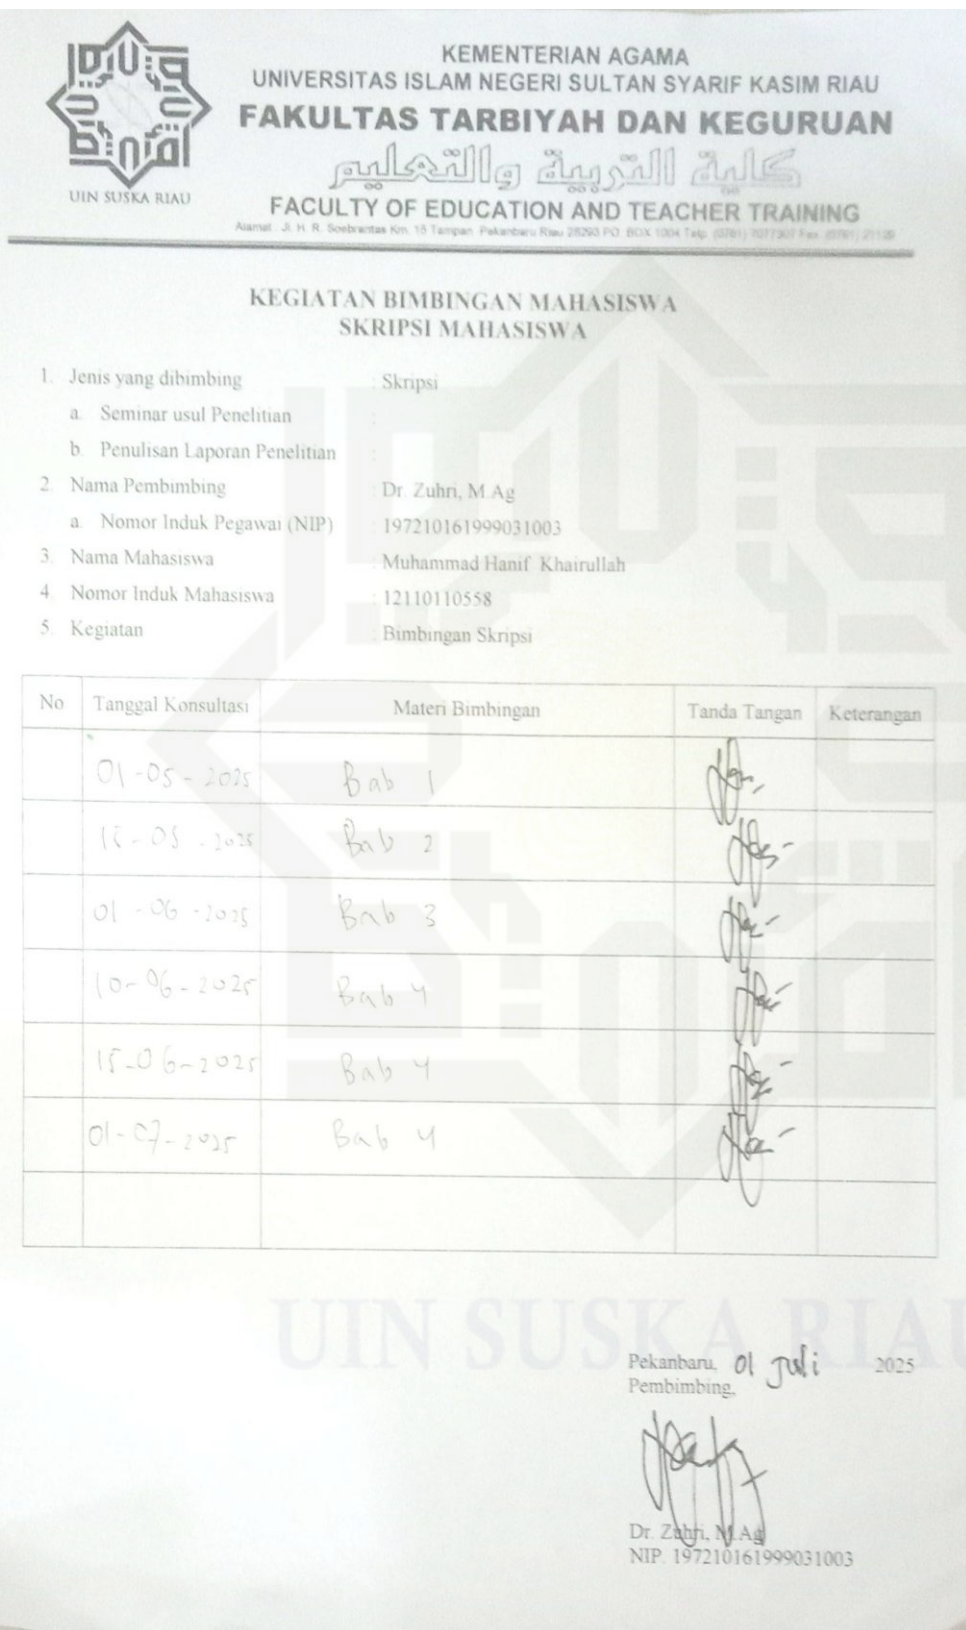 UIN SUSKA RIAU
KEMENTERIAN AGAMA
UNIVERSITAS ISLAM NEGERI SULTAN SYARIF KASIM RIAU
FAKULTAS TARBIYAH DAN KEGURUAN
كلية التربية والتعليم
FACULTY OF EDUCATION AND TEACHER TRAINING
Alamat : Jl. H. R. Soebrantas Km. 15 Tampan Pekanbaru Riau 28293 PO. BOX 1004 Telp. (0761) 7077307 Fax. (0761) 21129
KEGIATAN BIMBINGAN MAHASISWA
SKRIPSI MAHASISWA
1. Jenis yang dibimbing : Skripsi
a. Seminar usul Penelitian :
b. Penulisan Laporan Penelitian :
2. Nama Pembimbing : Dr. Zuhri, M.Ag
a. Nomor Induk Pegawai (NIP) : 197210161999031003
3. Nama Mahasiswa : Muhammad Hanif Khairullah
4. Nomor Induk Mahasiswa : 12110110558
5. Kegiatan : Bimbingan Skripsi
No Tanggal Konsultasi Materi Bimbingan Tanda Tangan Keterangan
01-05-2025 Bab 1
-05-2025 Bab 2
01-06-2025 Bab 3
10-06-2025 Bab 4
15-06-2025 Bab 4
01-07-2025 Bab 4
UIN SUSKA RIAU
Pekanbaru, 01 Juli 2025
Pembimbing,
Dr. Zuhri, M.Ag
NIP. 197210161999031003